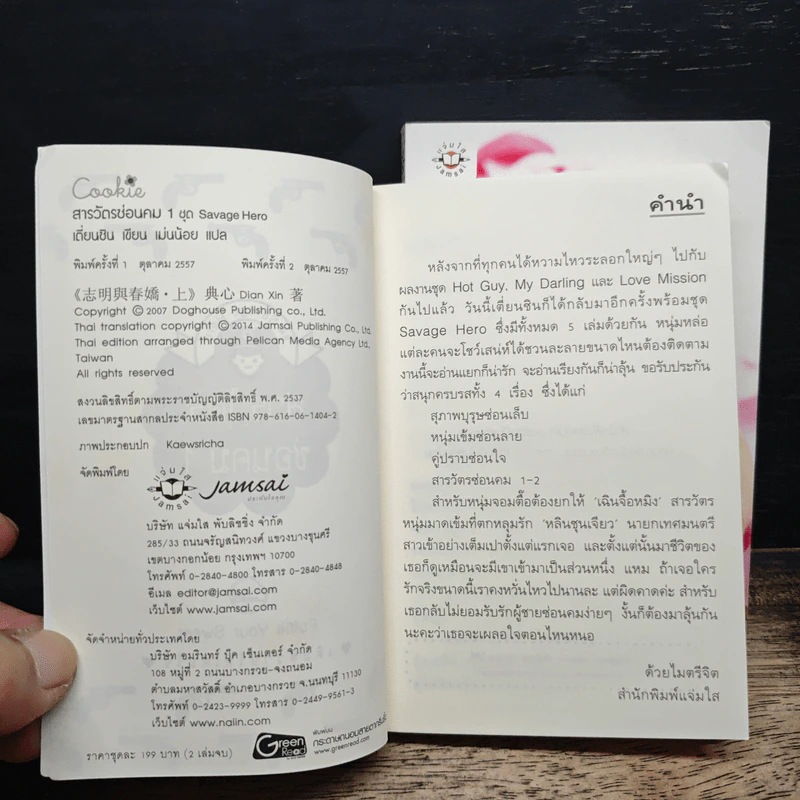 Cookie
สารวัตรซ่อนคม 1 ชุด Savage Hero
เตี่ยนซิน เขียน เม่นน้อย แปล
พิมพ์ครั้งที่ 1 ตุลาคม 2557 พิมพ์ครั้งที่ 2 ตุลาคม 2557
《志明與春嬌・上》典心 Dian Xin 著
Copyright © 2007 Doghouse Publishing co., Ltd.
Thai translation copyright © 2014 Jamsai Publishing Co., Ltd.
Thai edition arranged through Pelican Media Agency Ltd.,
Taiwan
All rights reserved
สงวนลิขสิทธิ์ตามพระราชบัญญัติลิขสิทธิ์ พ.ศ. 2537
เลขมาตรฐานสากลประจำหนังสือ ISBN 978-616-06-1404-2
ภาพประกอบปก Kaewsricha
จัดพิมพ์โดย
แจ่มใส
Jamsai
Jamsai
บริษัท แจ่มใส พับลิชชิ่ง จำกัด
285/33 ถนนจรัญสนิทวงศ์ แขวงบางขุนศรี
เขตบางกอกน้อย กรุงเทพฯ 10700
โทรศัพท์ 0-2840-4800 โทรสาร 0-2840-4848
อีเมล editor@jamsai.com
เว็บไซต์ www.jamsai.com
จัดจำหน่ายทั่วประเทศโดย
บริษัท อมรินทร์ บุ๊ค เซ็นเตอร์ จำกัด
108 หมู่ที่ 2 ถนนบางกรวย-จงถนอม
ตำบลมหาสวัสดิ์ อำเภอบางกรวย จ.นนทบุรี 11130
โทรศัพท์ 0-2423-9999 โทรสาร 0-2449-9561-3
เว็บไซต์ www.naiin.com
ราคาชุดละ 199 บาท (2 เล่มจบ)
Green Read
พิมพ์บน
กระดาษถนอมสายตากรีนรี้ด
www.greenread.com
แจ่มใส
Jamsai
คำนำ
หลังจากที่ทุกคนได้หวามไหวระลอกใหญ่ๆ ไปกับ
ผลงานชุด Hot Guy, My Darling และ Love Mission
กันไปแล้ว วันนี้เตี่ยนซินก็ได้กลับมาอีกครั้งพร้อมชุด
Savage Hero ซึ่งมีทั้งหมด 5 เล่มด้วยกัน หนุ่มหล่อ
แต่ละคนจะโชว์เสน่ห์ได้ชวนละลายขนาดไหนต้องติดตาม
งานนี้จะอ่านแยกก็น่ารัก จะอ่านเรียงกันก็น่าลุ้น ขอรับประกัน
ว่าสนุกครบรสทั้ง 4 เรื่อง ซึ่งได้แก่
สุภาพบุรุษซ่อนเล็บ
หนุ่มเข้มซ่อนลาย
คู่ปราบซ่อนใจ
สารวัตรซ่อนคม 1-2
สำหรับหนุ่มจอมตื๊อต้องยกให้ 'เฉินจื้อหมิง' สารวัตร
หนุ่มมาดเข้มที่ตกหลุมรัก 'หลินชุนเจียว' นายกเทศมนตรี
สาวเข้าอย่างเต็มเปาตั้งแต่แรกเจอ และตั้งแต่นั้นมาชีวิตของ
เธอก็ดูเหมือนจะมีเขาเข้ามาเป็นส่วนหนึ่ง แหม ถ้าเจอใคร
รักจริงขนาดนี้เราคงหวั่นไหวไปนานละ แต่ผิดคาดค่ะ สำหรับ
เธอกลับไม่ยอมรับรักผู้ชายซ่อนคมง่ายๆ งั้นก็ต้องมาลุ้นกัน
นะคะว่าเธอจะเผลอใจตอนไหนหนอ
ด้วยไมตรีจิต
สำนักพิมพ์แจ่มใส